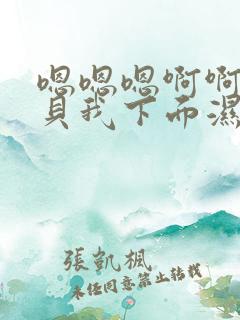 嗯嗯嗯啊啊
貝我下面濕
張凱楓
未任同意禁止转载